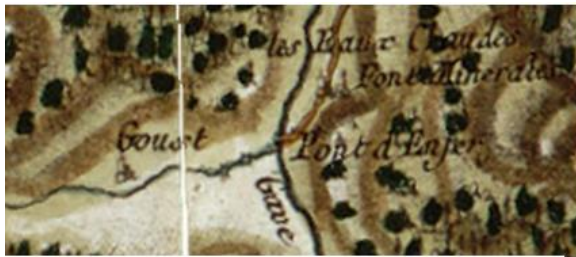 les Eaux Chaudes
Font Minerales
Goust
Pont d'Enfer
Gave